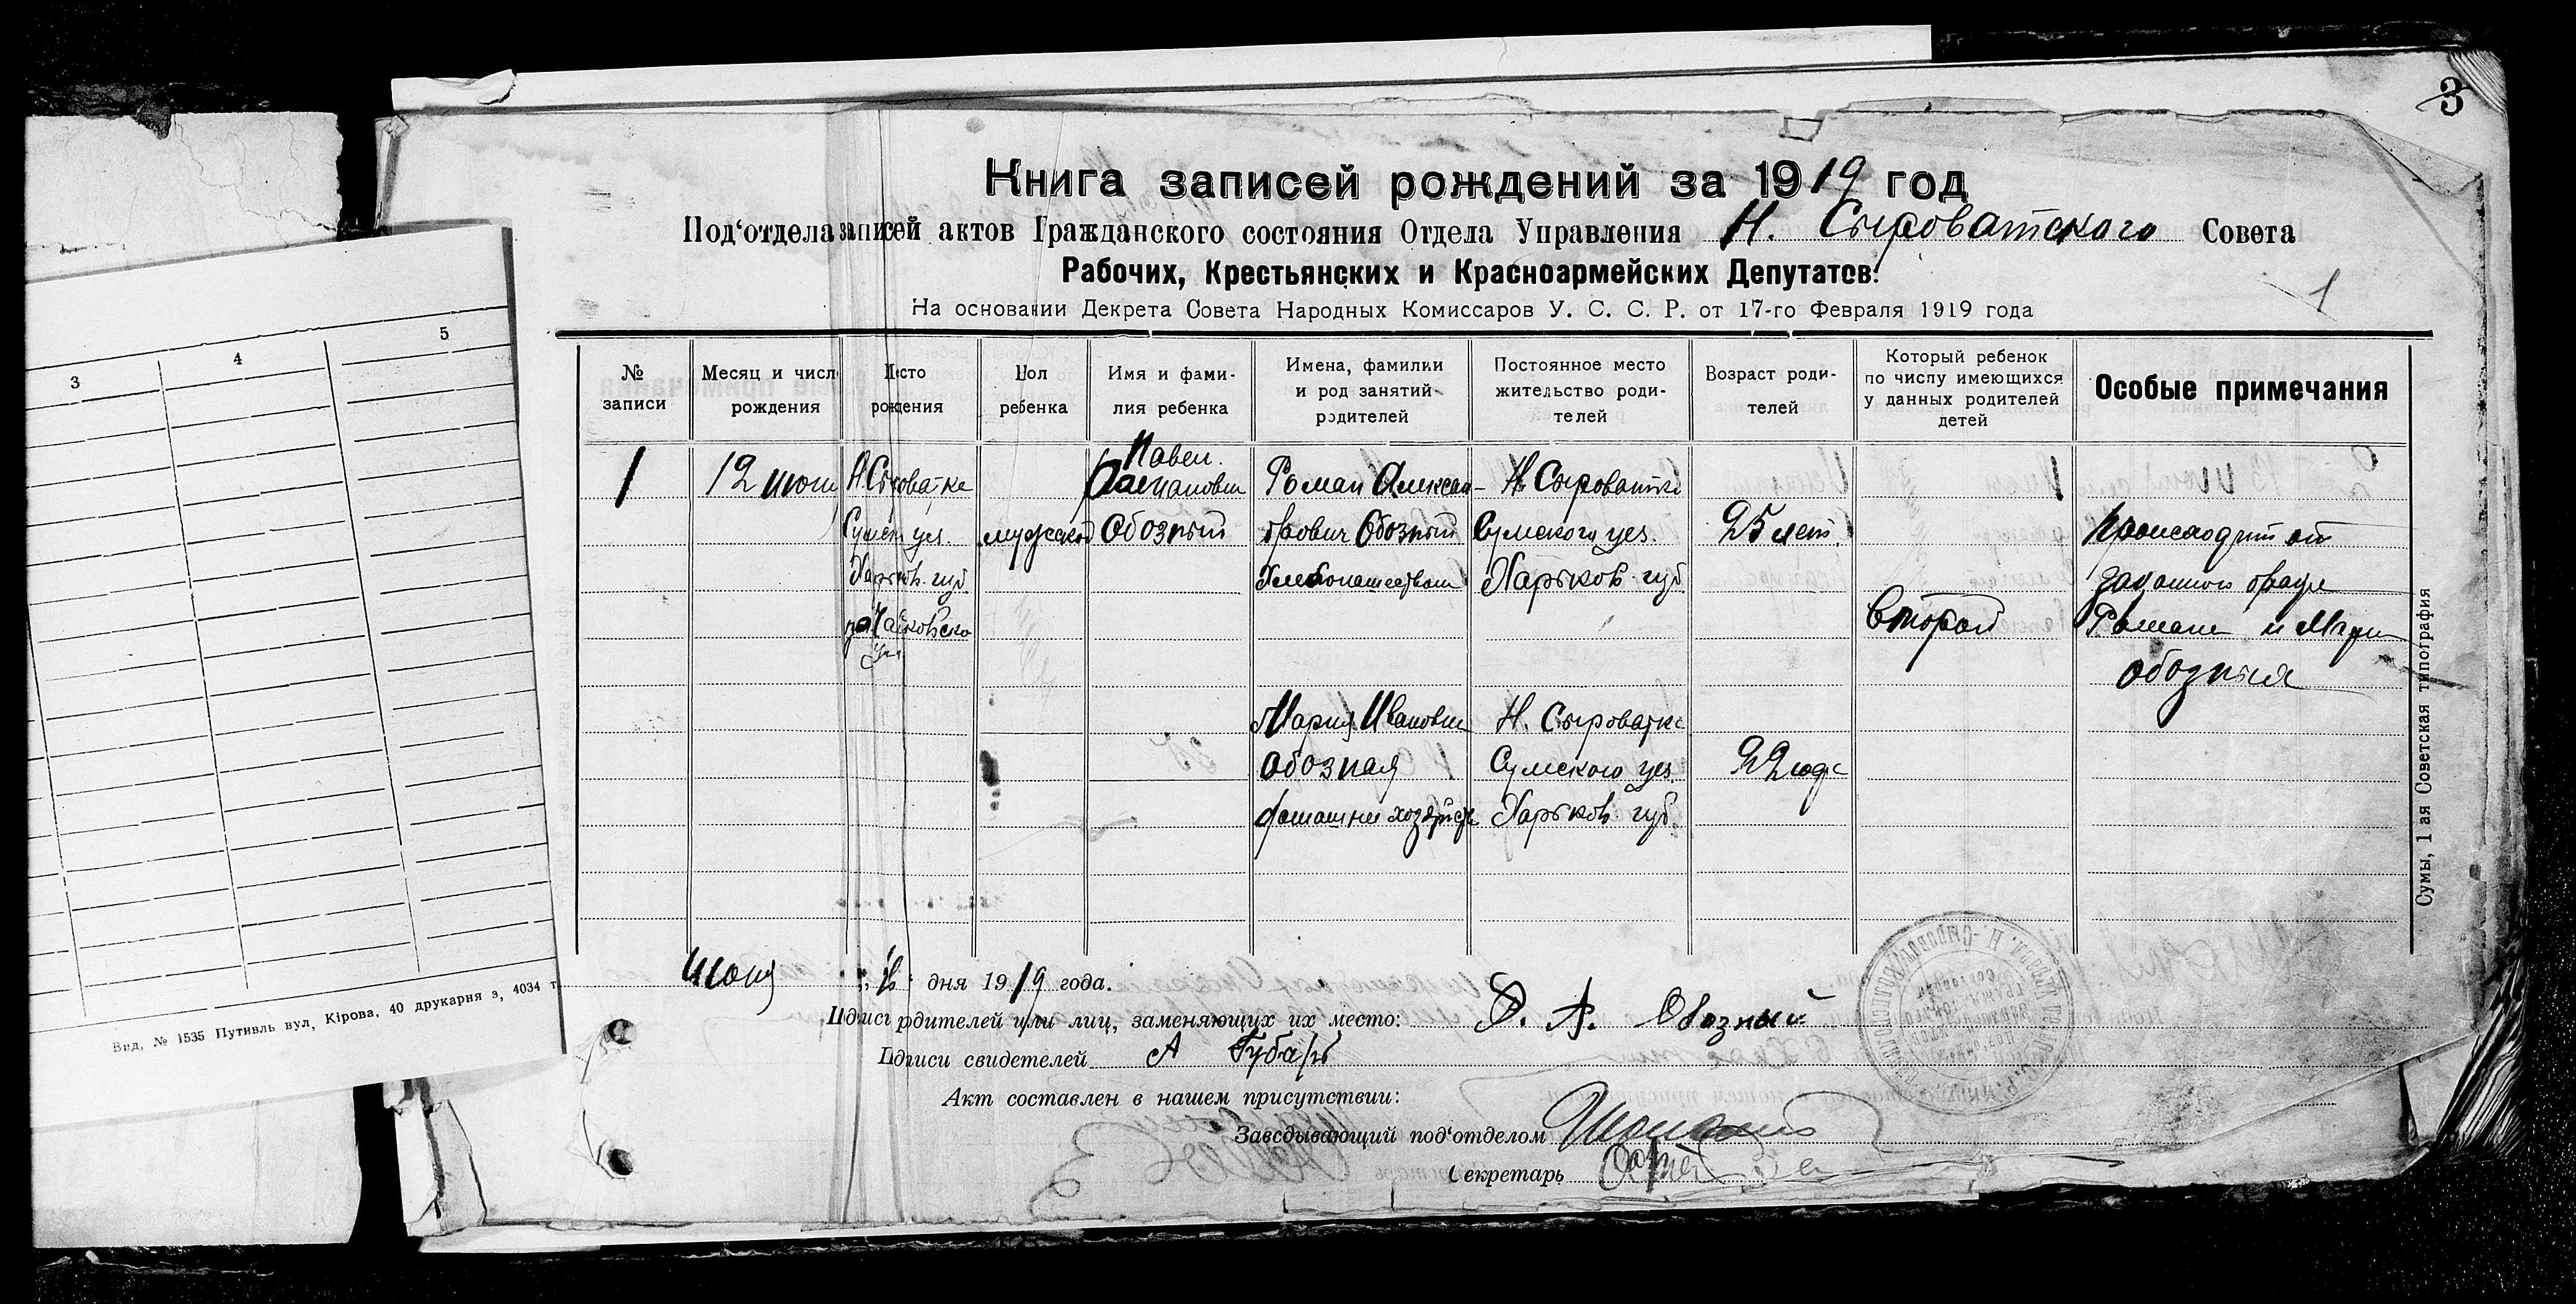 3
Книга записей рождений за 1919 год
Под‘отдела записей актов Гражданского состояния Отдела Управления Н. Сыроватского Совета
Рабочих, Крестьянских и Красноармейских Депутатов.
1
На основании Декрета Совета Народных Комиссаров У. С. С. Р. от 17-го Февраля 1919 года
№ записи
Месяц и число рождения
Место рождения
Пол ребенка
Имя и фами-
лия ребенка
Имена, фамилии
и род занятий
родителей
Постоянное место
жительство роди-
телей
Возраст роди-
телей
Который ребенок
по числу имеющихся
у данных родителей
детей
Особые примечания
1
12 июня
Н Сыроватка
Сумск уез.
Харьков. губ
мужской
Павел
Обозный
Роман Алексан-
дрович Обозный
Хлебопашеством
Н. Сыроватке
Сумского уез.
Харьков. губ
25 лет.
второй
Происходит от
законного брака
Романа и Марии
Обозных
Мария Ивановна
Обозная
домашни хозяйст
Н. Сыроватке
Сумского уез.
Харьков. губ.
22 года
Сумы, 1 ая Советская типография
июня дня 1919 года.
Подписи родителей или лиц, заменяющих их место: Р. А. Обозный
Подписи свидетелей А Губарь
Акт составлен в нашем присутствии:
Заведывающий под‘отделом
Секретарь
3 4 5
Вид, № 1535 Путивль вул, Кірова, 40 друкарня з, 4034 т